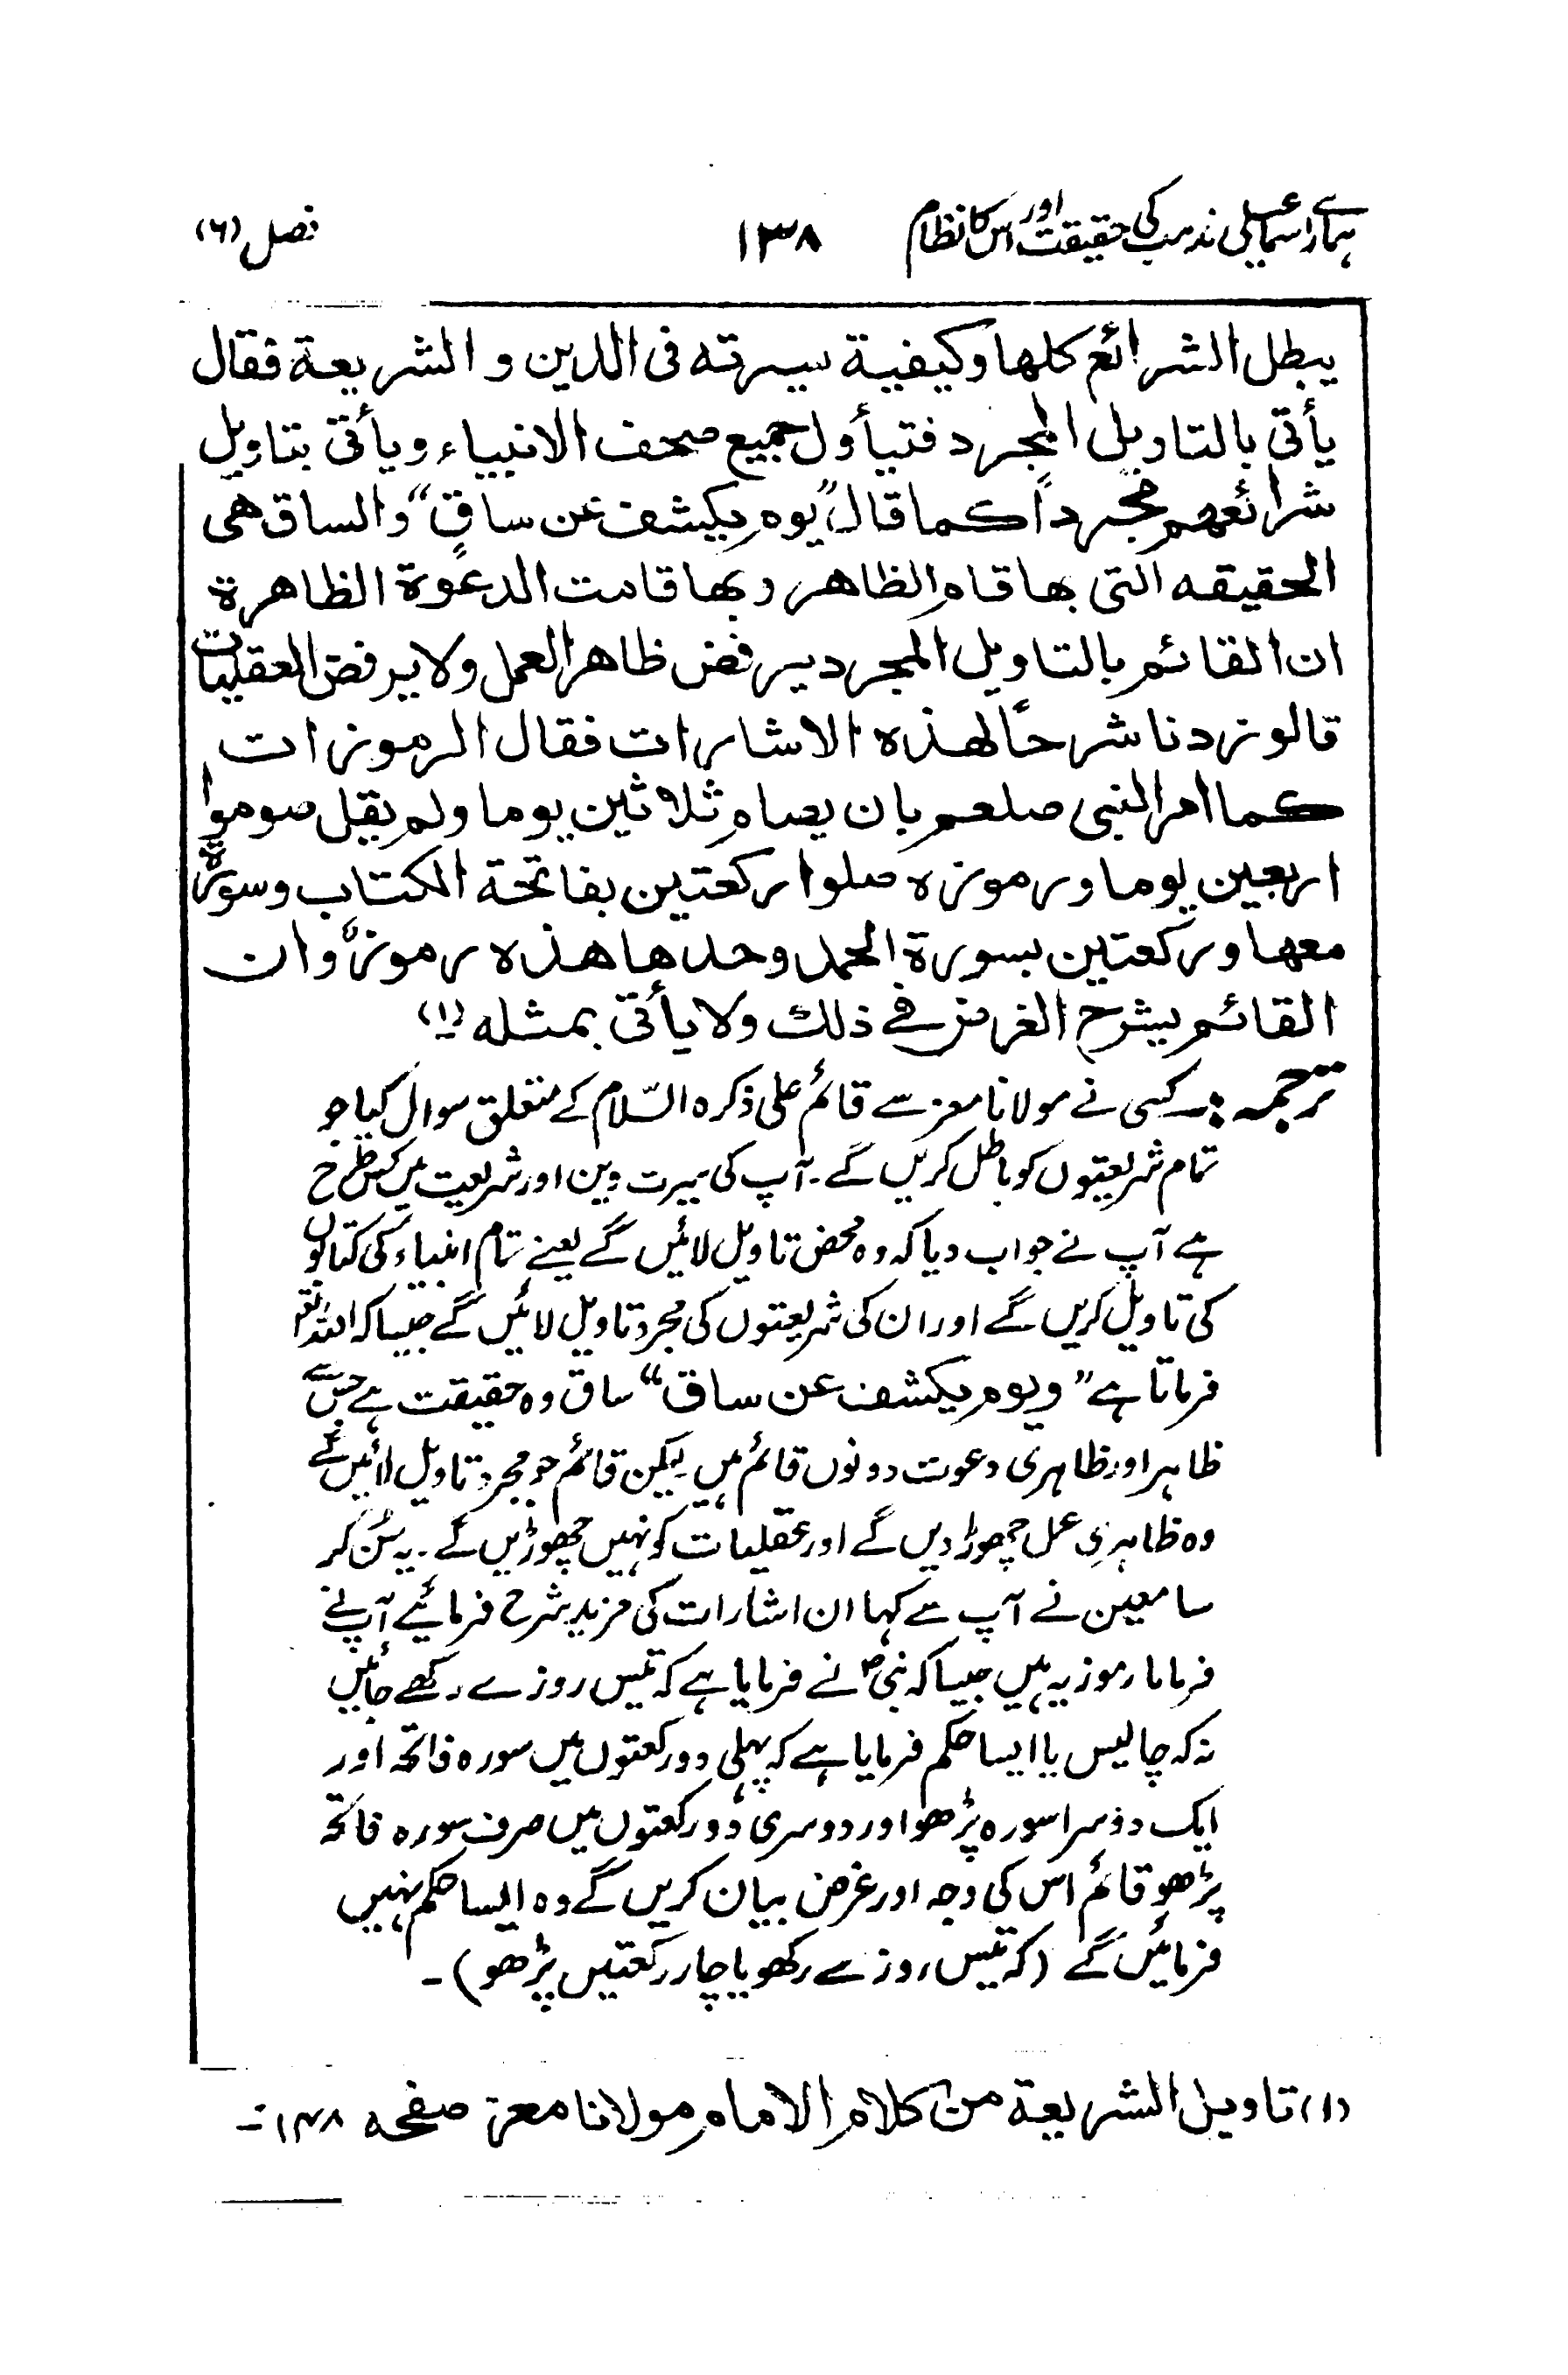 ہمارے اسماعیلی مذہب کی حقیقت اور اس کا نظام ۱۳۸ فصل (۶)
يبطل الشرائع كلها وكيفية سيرته فى الدين و الشريعة فقال
يأتى بالتاويل المجرد فتيأول جميع صحف الانبياء ويأتى بتاويل
شرائعهم مجرداً كما قال ”يوم يكشف عن ساقٍ“ والساق هى
الحقيقه التى بها قام الظاهر وبها قامت الدعوة الظاهرة
ان القائم بالتاويل المجرد يرفض ظاهر العمل ولا يرفض العقليات
قالو نردنا شرحاً لهذه الاشارات فقال الرموزات
كما امر النبى صلعم بان يصام ثلاثين يوما ولم يقل صوموا
اربعين يوما ورموزه صلوا ركعتين بفاتحة الكتاب وسورة
معها وركعتين بسورة الحمد وحدها هذه رموزٌ وان
القائم يشرح الغرض فے ذلك ولا يأتى بمثله (۱)
ترجمہ :۔ کسی نے مولانا معز سے قائم علی ذکرہ السّلام کے متعلق سوال کیا جو
تمام شریعتوں کو باطل کریں گے ۔ آپ کی سیرت دین اور شریعت میں کس طرح
ہے آپ نے جواب دیا کہ وہ محض تاویل لائیں گے یعنے تمام انبیاء کی کتابوں
کی تاویل کریں گے اور ان کی شریعتوں کی مجرد تاویل لائیں گے جیسا کہ اللہ تعؔ
فرماتا ہے ”ويوم يكشف عن ساق“ ساق وہ حقیقت ہے جس سے
ظاہر اور ظاہری دعوت دونوں قائم ہیں لیکن قائم جو مجرد تاویل لائیں گے
وہ ظاہری عمل چھوڑ دیں گے اور عقلیات کو نہیں چھوڑیں گے ۔ یہ سُن کر
سامعین نے آپ سے کہا ان اشارات کی مزید شرح فرمائیے آپ نے
فرمایا رموز یہ ہیں جیسا کہ نبیؐ نے فرمایا ہے کہ تیس روزے رکھے جائیں
نہ کہ چالیس یا ایسا حکم فرمایا ہے کہ پہلی دو رکعتوں میں سورہ فاتحہ اور
ایک دوسرا سورہ پڑھو اور دوسری دو رکعتوں میں صرف سورہ فاتحہ
پڑھو قائم اس کی وجہ اور غرض بیان کریں گے وہ ایسا حکم نہیں
فرمائیں گے (کہ تیس روزے رکھو یا چار رکعتیں پڑھو) ۔
(۱) تاويل الشريعة من كلام الامام مولانا معز صفحہ ۱۴۸ ۔